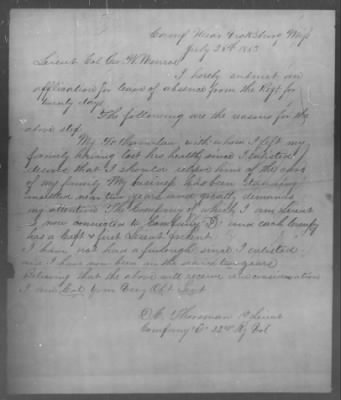 Camp Near Vicksburg Miss
July 25th 1863
Lieut Col Geo W. Monroe
I hereby submit an
application for leave of absence from the Regt for
twenty days
The following are the reasons for the
above step
My Father in law, with whom I left my
family having lost his health since I enlisted
desires that I should relieve him of the care
of my family My business has been standing
unsettled near two years and greatly demands
my attention The Company of which I am Lieut
is now connected to Company " and each Company
has a Capt & first Lieut present
I have not had a furlough since I enlisted
and I have now been in the service two years
believing that the above will receive
I am Col your Obt Servt
Lieut
Company 22d Ky Vol